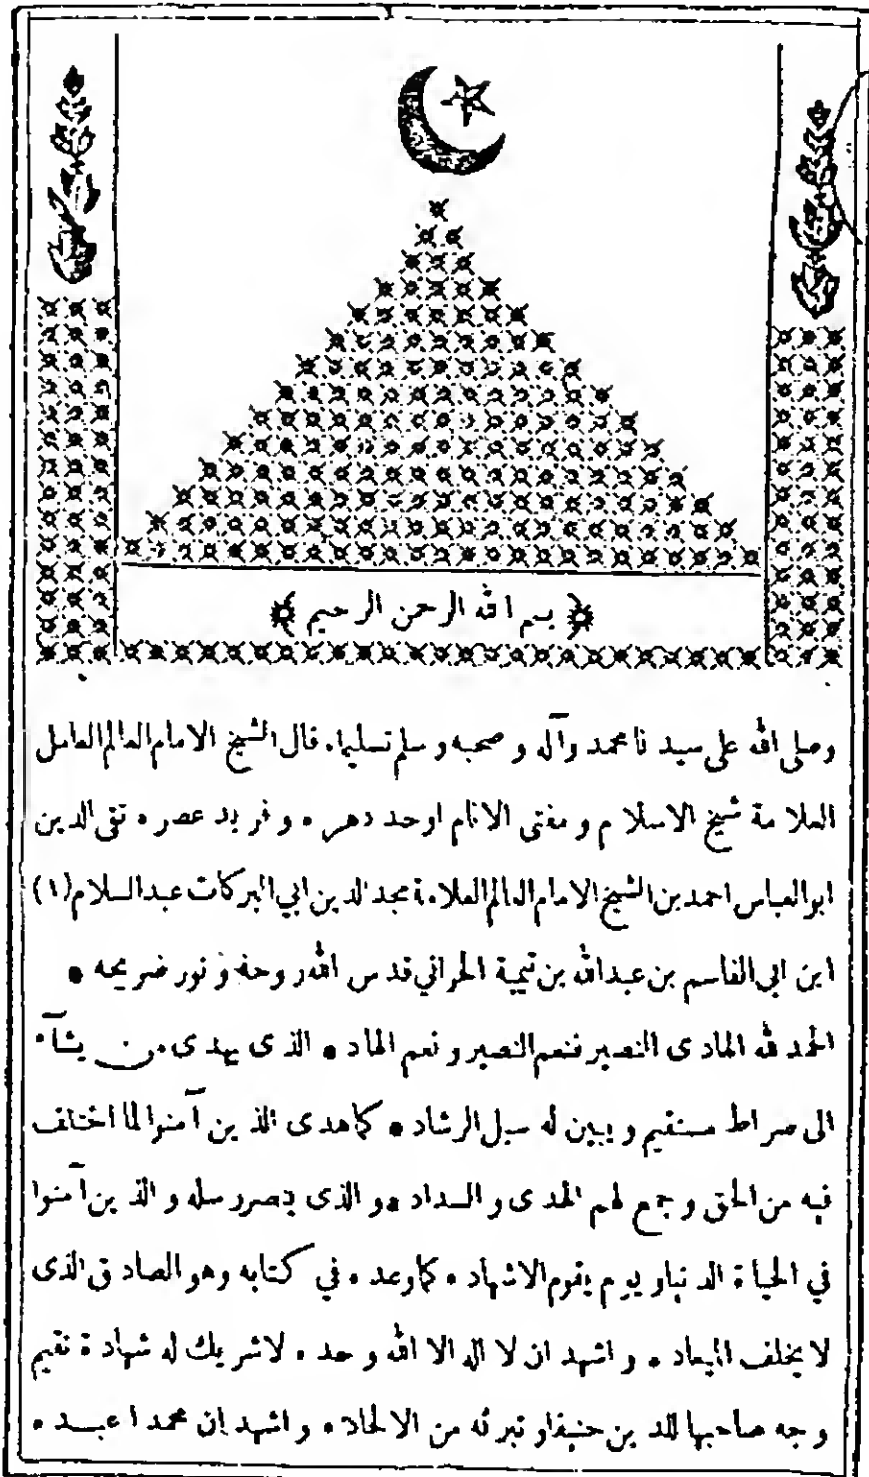 بسم الله الرحمن الرحيم
وصلى الله على سيدنا محمد وآله وصحبه وسلم تسليما. قال الشيخ الامام العالم العامل
العلامة شيخ الاسلام ومفتى الانام اوحد دهره وفريد عصره تقى الدين
ابوالعباس احمد بن الشيخ الامام العالم العلامة مجد الدين ابي البركات عبد السلام (١)
ابن ابي القاسم بن عبدالله بن تيمية الحراني قدس الله روحه ونور ضريحه •
الحمد لله الهادى النصير فنعم النصير ونعم الهاد • الذى يهدى من يشآء
الى صراط مستقيم ويبين له سبل الرشاد • كما هدى الذين آمنوا لما اختلف
فيه من الحق وجمع لهم الهدى والسداد • والذى ينصر رسله والذين آمنوا
في الحياة الدنيا ويوم يقوم الاشهاد • كما وعده في كتابه وهو الصادق الذى
لا يخلف الميعاد • واشهد ان لا اله الا الله وحده لا شريك له شهادة تقيم
وجه صاحبها للدين حنيفا وتبرئه من الالحاد • واشهد ان محمدا عبده